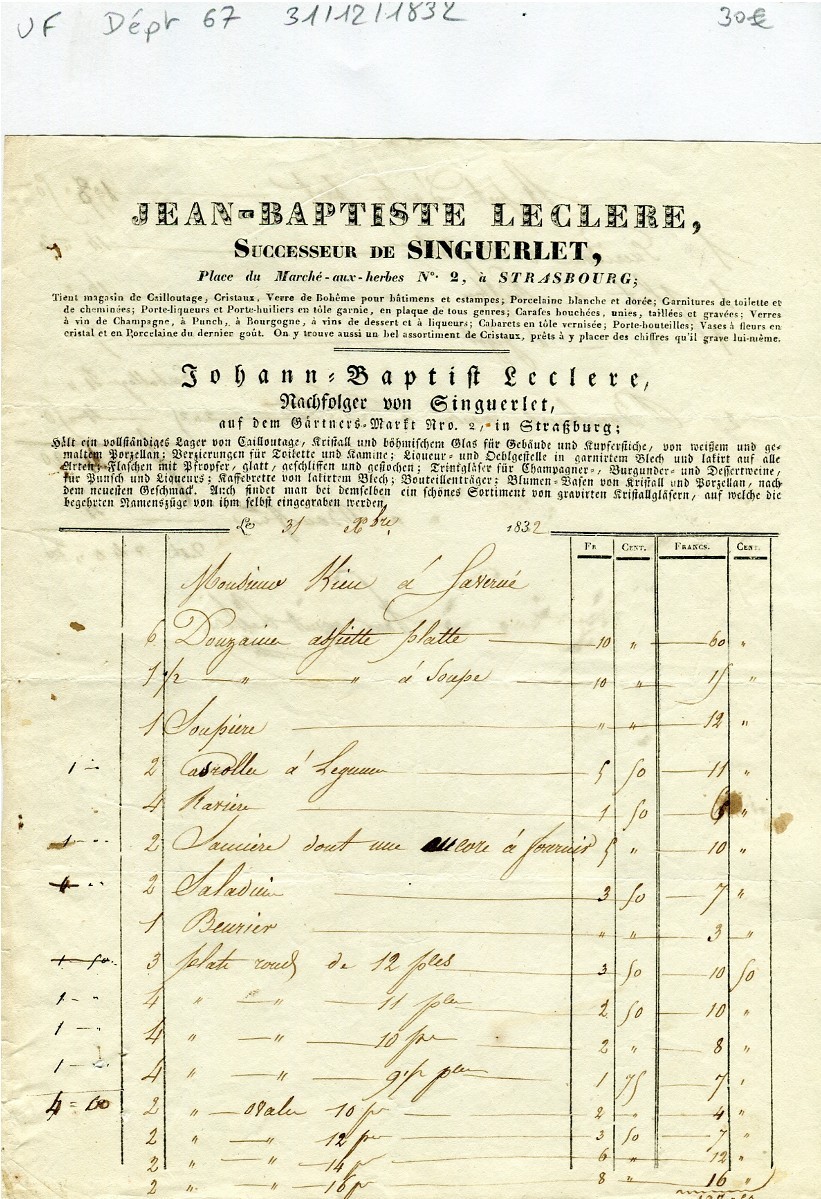 VF Dépt 67 31/12/1832 30€
JEAN-BAPTISTE LECLERE,
SUCCESSEUR DE SINGUERLET,
Place du Marché-aux-herbes N°. 2, à STRASBOURG;
Tient magasin de Cailloutage, Cristaux, Verre de Bohême pour bâtimens et estampes; Porcelaine blanche et dorée; Garnitures de toilette et
de cheminées; Porte-liqueurs et Porte-huiliers en tôle garnie, en plaque de tous genres; Carafes bouchées, unies, taillées et gravées; Verres
à vin de Champagne, à Punch, à Bourgogne, à vins de dessert et à liqueurs; Cabarets en tôle vernisée; Porte-bouteilles; Vases à fleurs en
cristal et en Porcelaine du dernier goût. On y trouve aussi un bel assortiment de Cristaux, prêts à y placer des chiffres qu'il grave lui-même.
Johann-Baptist Leclere,
Nachfolger von Singuerlet,
auf dem Gärtners-Markt Nro. 2, in Straßburg;
Hält ein vollständiges Lager von Cailloutage, Kristall und böhmischem Glas für Gebäude und Kupferstiche, von weißem und ge-
maltem Porzellan; Verzierungen für Toilette und Kamine; Liqueur- und Oehlgestelle in garnirtem Blech und lakirt auf alle
Arten; Flaschen mit Pfropfer, glatt, geschliffen und gestochen; Trinkgläser für Champagner-, Burgunder- und Dessertweine,
für Punsch und Liqueurs; Kaffebrette von lakirtem Blech; Bouteillenträger; Blumen-Vasen von Kristall und Porzellan, nach
dem neuesten Geschmack. Auch findet man bei demselben ein schönes Sortiment von gravirten Kristallgläsern, auf welche die
begehrten Namenszüge von ihm selbst eingegraben werden.
Le 31 Xbre. 1832
FR CENT. FRANCS. CENT.
Monsieur Kien à Saverne
6 Douzaine assiette platte 10 " 60 "
1 1/2 " " à Soupe 10 " 15 "
1 Soupière " " 12 "
1 - 2 à Legume 5 50 11 "
4 Ravière 1 50 6 "
1 - 2 Saucière dont une encore à fournir 5 " 10 "
2 Saladier 3 50 7 "
1 Beurier " " 3 "
1 - 50 3 plats rond de 12 pces 3 50 10 50
1 - " 4 " " 11 pces 2 50 10 "
1 - " 4 " " 10 pce 2 " 8 "
1 - 4 " " 1 75 7 "
4 = 2 " ovales 10 pce 2 " 4 "
2 " " 12 pce 3 50 7 "
2 " " 14 pce 6 " 12 "
2 " " 16 pce 8 " 16 "